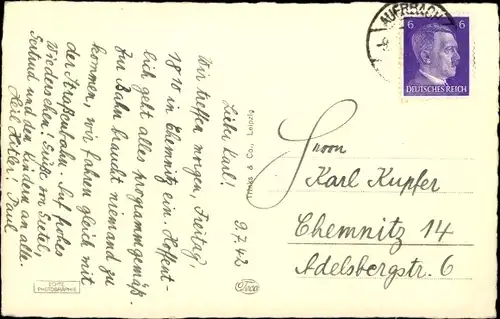 9.7.42
Lieber Karl!
Wir treffen morgen, Freitag,
18¹⁰ in Chemnitz ein. Hoffent-
lich geht alles programmgemäß.
Zur Bahn braucht niemand zu
kommen, wir fahren gleich mit
der Straßenbahn. Auf frohes
Wiedersehen! Grüße von Gretel,
Gertrud und den Kindern an alle.
Heil Hitler! Paul
ECHTE
PHOTOGRAPHIE
& Co., Leipzig
AUERBACH
6 6
DEUTSCHES REICH
Herrn
Karl Kupfer
Chemnitz 14
Adelsbergstr. 6